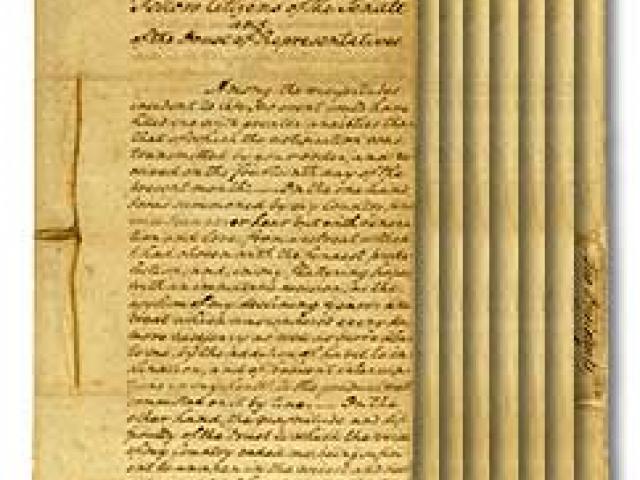 Fellow Citizens of the Senate
and
of the House of Representatives
Among the vicissitudes
incident to life, no event could have
filled me with greater anxieties than
that of which the notification was
transmitted by your order, and re
ceived on the fourteenth day of the
present month. — On the one hand,
I was summoned by my Country, 
can never hear but with venera
tion and love, from a retreat which
I had chosen with the fondest predi
lection, and, in my flattering hopes,
with an immutable decision, as the
asylum of my declining years: a re
treat which was rendered every day
more necessary as well as more dear
to me, by the addition of habit to in
clination, and of frequent interrup
tions in my health to the gradual waste
committed on it by time. — On the
other hand, the magnitude and dif
ficulty of the trust to which the voice
of my Country called me, being suffici
ent to awaken in the wisest and most